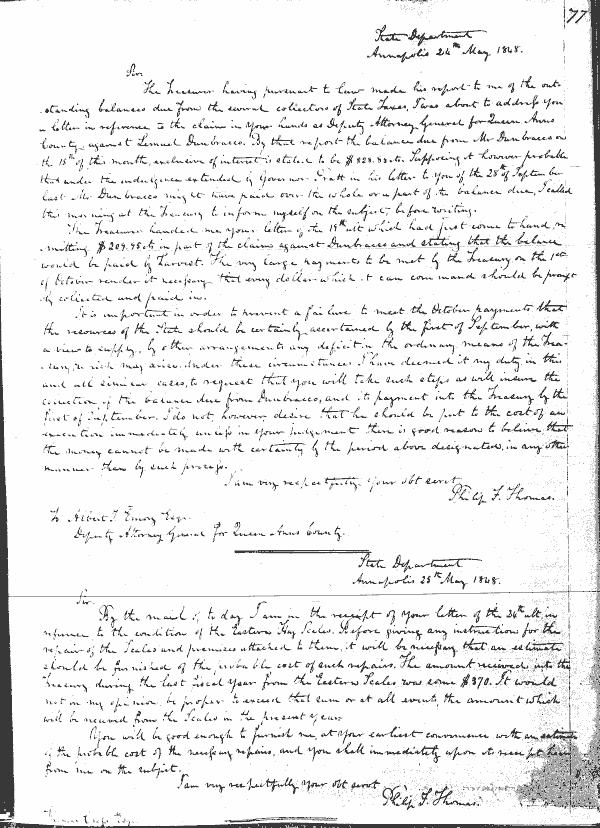 77
State Department
Annapolis 24th May 1848.
Sir
The Treasurer having pursuant to law made his report to me of the out-
standing balances due from the several collectors of State Taxes, I was about to address you
a letter in reference to the claims in your hands as Deputy Attorney General for Queen Anns
County, against Lemuel Dunbracco. By that report the balance due from Mr Dunbracco on
the 15th of this month, exclusive of interest is stated to be $828.83 cts. Supposing it however probable
that under the indulgence extended by Governor Pratt in his letter to you of the 28th of September
last Mr Dunbracco might have paid over the whole or a part of the balance due, I called
this morning at the Treasury to inform myself on the subject, before writing.
The Treasurer handed me your letter of the 19th ult which had just come to hand, re-
mitting $209.95 cts in part of the claims against Dunbracco and stating that the balance
would be paid by harvest. The very large payments to be met by the Treasury on the 1st
of October render it necessary that every dollar which it can command should be prompt
ly collected and paid in.
It is important in order to prevent a failure to meet the October payments that
the resources of the State should be certainly ascertained by the first of September, with
a view to supply, by other arrangements any deficit in the ordinary means of the Trea-
sury, which may arise. Under these circumstances I have deemed it my duty in this
and all similar cases, to request that you will take such steps as will insure the
collection of the balance due from Dunbracco, and its payment into the Treasury by the
first of September. I do not, however, desire that he should be put to the cost of an
execution immediately unless in your judgement there is good reason to believe, that
the money cannot be made with certainty by the period above designated, in any other
manner than by such process.
I am very respectfully your obt servt
Philip F. Thomas.
To Albert T. Emory Esqr.
Deputy Attorney General for Queen Anns County.
State Department
Annapolis 25th May 1848.
Sir.
By the mail of to day I am in the receipt of your letter of the 24th ult in
reference to the condition of the Eastern Hay Scales. Before giving any instructions for the
repair of the Scales and premises attached to them, it will be necessary that an estimate
should be furnished of the probable cost of such repairs. The amount received into the
Treasury during the last fiscal year from the Eastern Scales was some $370. It would
not in my opinion be proper to exceed that sum or at all events, the amount which
will be received from the Scales in the present year.
You will be good enough to furnish me, at your earliest convenience with an estimate
of the probable cost of the necessary repairs, and you shall immediately upon its receipt hear
from me on the subject.
I am very respectfully your obt servt
Philip F. Thomas.